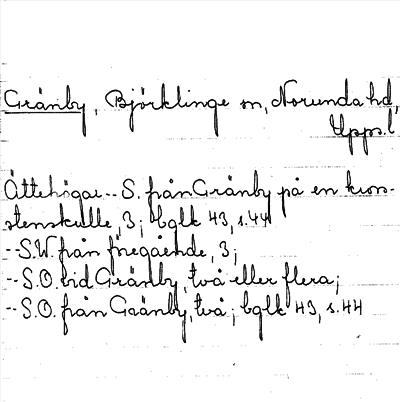 Gränby, Björklinge sn, Norunda hd,
Uppsl
Ättehögar -- S. från Gränby på en kors-
stenskulle, 3; bglk 43, s.44
-- S.W. från föregående, 3;
-- S.O. vid Gränby, två eller flera;
-- S.O. från Gränby, två; bglk 43, s.44